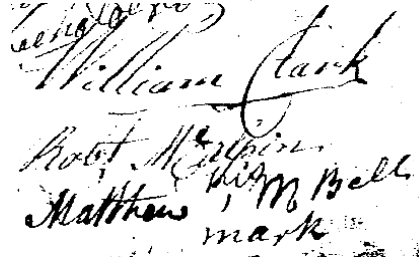 William Clark
Robt
his
Matthew M Bell
mark